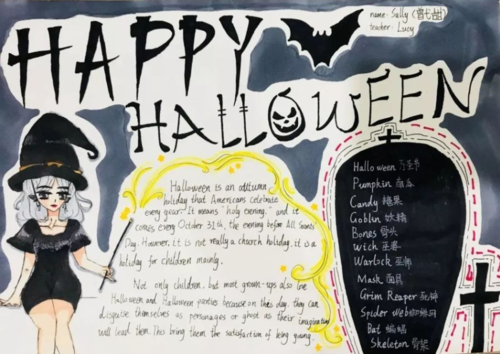 HAPPY
HALLOWEEN
name: Sally
teacher: Lucy
Halloween is an autumn
holiday that Americans celebrate
every year. It means "holy evening," and it
comes every October 31th, the evening before All Saints'
Day. However, it is not really a church holiday, it is a
holiday for children mainly.
Not only children, but most grown-ups also love
Halloween and Halloween parties because on this day, they can
disguise themselves as personages or ghost as their imaginations
will lead them. This bring them the satisfaction of being young.
Halloween 万圣节
Pumpkin 南瓜
Candy 糖果
Goblin 妖精
Bones 骨头
Witch 巫婆
Warlock 巫师
Mask 面具
Grim Reaper 死神
Spider web 蜘蛛网
Bat 蝙蝠
Skeleton 骨架